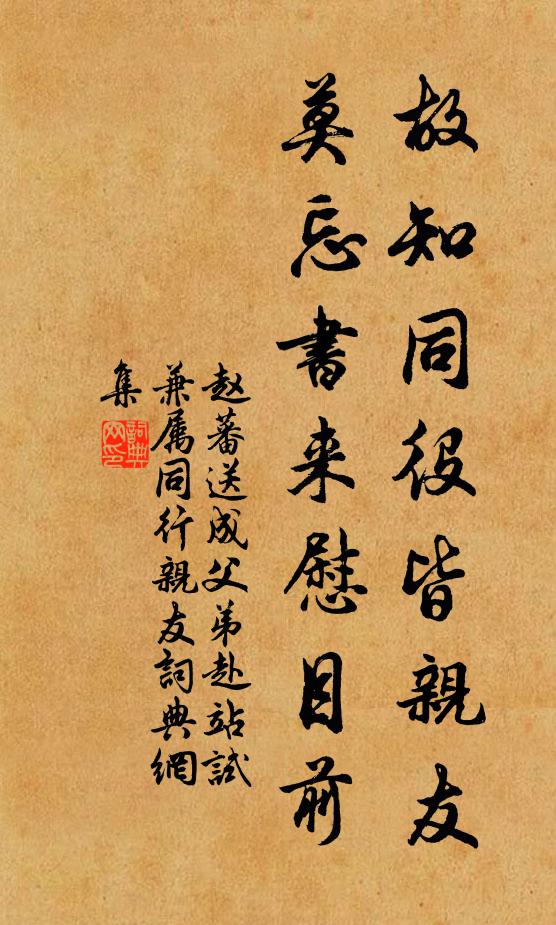 故知同役皆親友
莫忘書来慰目前
赵蕃送成父弟赴站試
兼属同行親友詞典網
集
詞典
网印